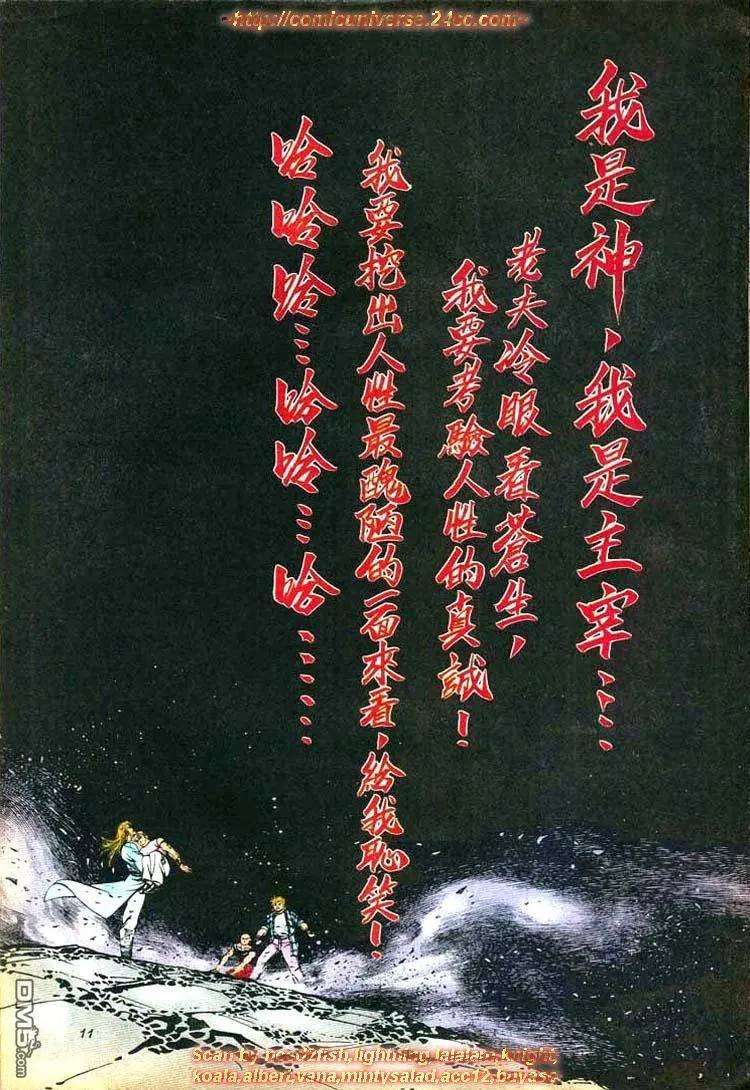 ~http://comicuniverse.24cc.com~
我是神，我是主宰……
老夫冷眼看蒼生，
我要考驗人性的真誠！
我要挖出人性最醜陋的一面來看，給我恥笑！
哈哈哈…哈哈…哈……
11
DM5.com
Scan by
koala,albert,vana,mintysalad,acc12,boyasc